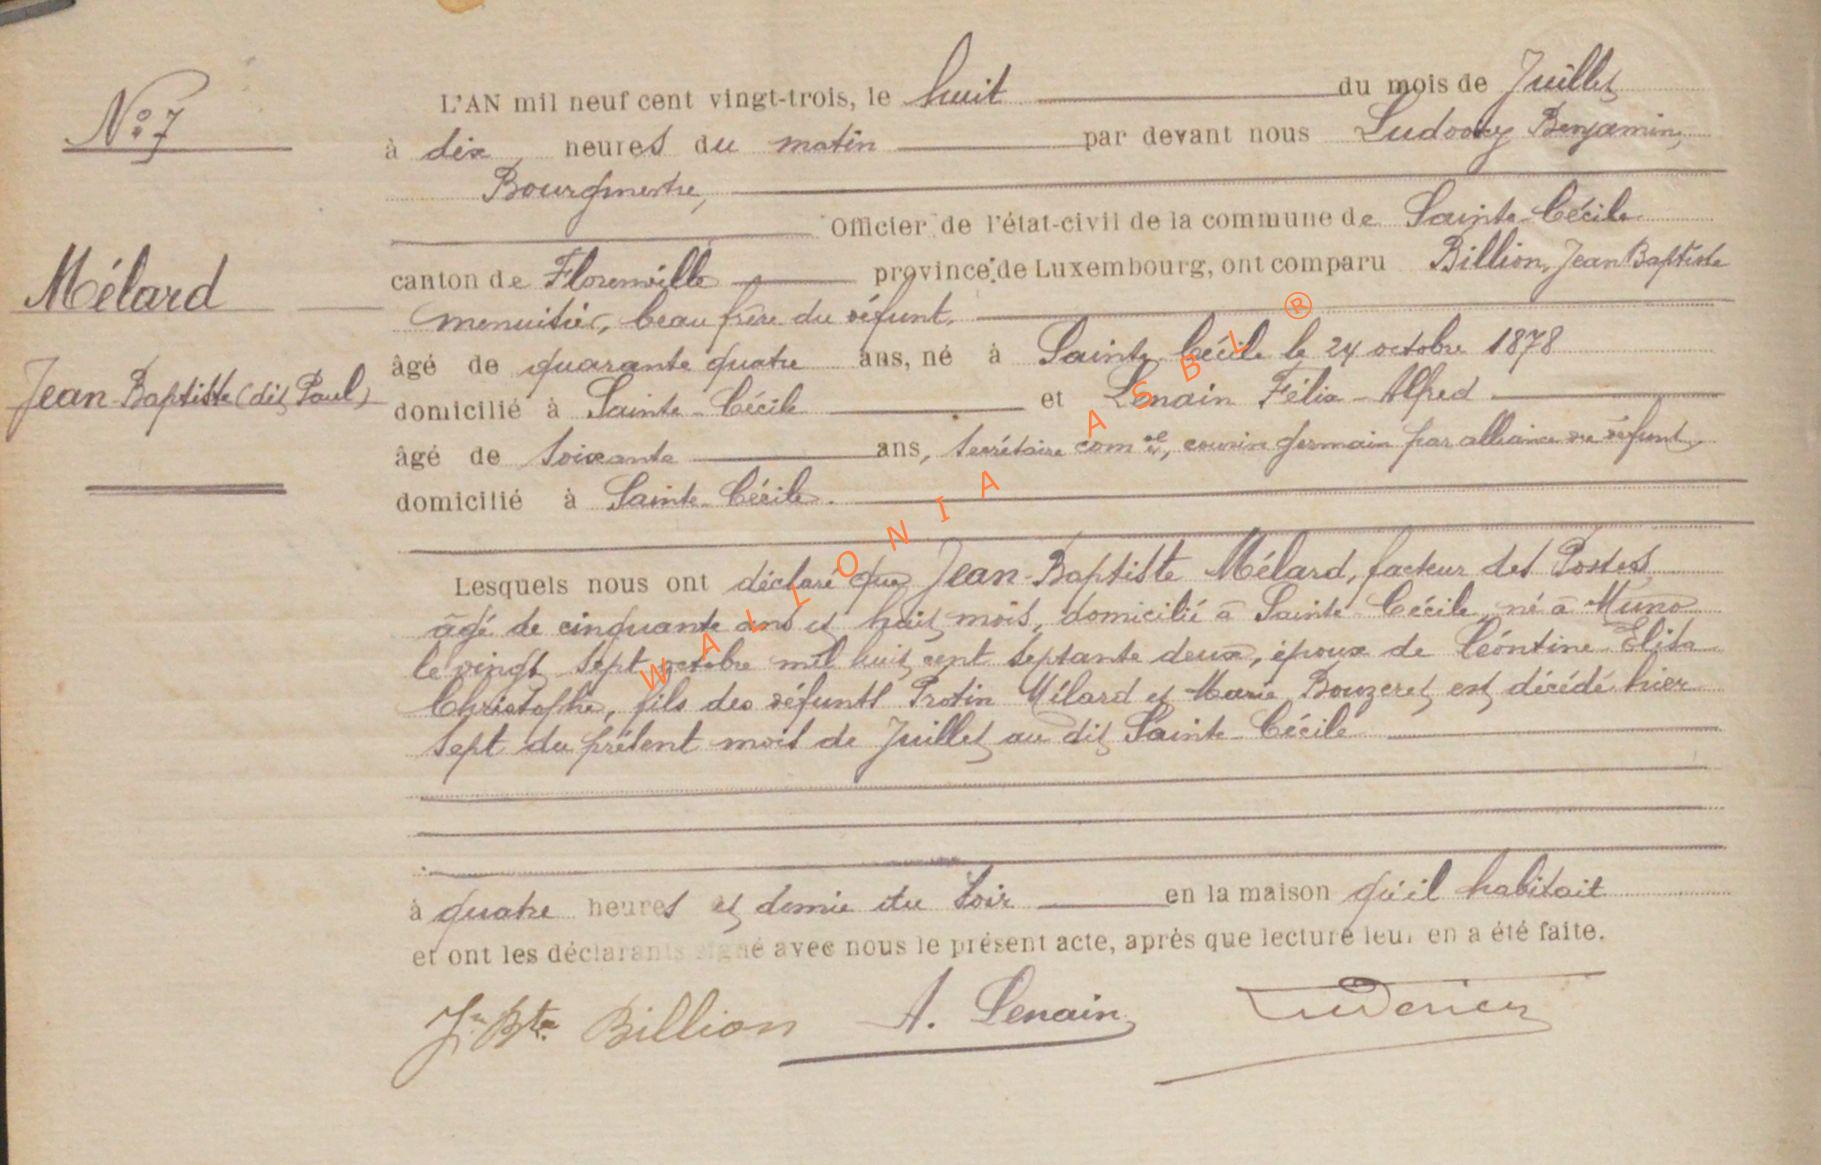 N° 7
Mélard
Jean-Baptiste (dit Paul)
L'AN mil neuf cent vingt-trois, le huit du mois de Juillet
à dix heures du matin par devant nous Ludovicy Benjamin,
Bourgmestre,
Officier de l'état-civil de la commune de Sainte-Cécile
canton de Florenville province de Luxembourg, ont comparu Billion, Jean Baptiste
menuisier, beau frère du défunt,
âgé de quarante quatre ans, né à Sainte Cécile le 24 octobre 1878
domicilié à Sainte-Cécile et Lenain Félix-Alfred
âgé de soixante ans, secrétaire comal, cousin germain par alliance du défunt,
domicilié à Sainte-Cécile.
Lesquels nous ont déclaré que Jean-Baptiste Mélard, facteur des Postes
âgé de cinquante ans et huit mois, domicilié à Sainte-Cécile, né à Muno
le vingt sept octobre mil huit cent septante deux, époux de Léontine Elisa
Christophe, fils des défunts Protin Mélard et Marie Bouzeret, est décédé hier
sept du présent mois de Juillet au dit Sainte-Cécile
à quatre heures et demie du soir en la maison qu'il habitait
et ont les déclarants signé avec nous le présent acte, après que lecture leur en a été faite.
Jn Bte Billion A. Lenain
WALLONIA ASBL ®